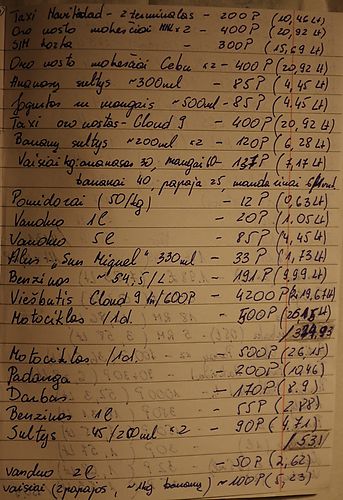 Taxi - 2 terminalas - 200P (10,46 Lt)
Oro uosto mokesčiai MNL x2 - 400P (20,92 Lt)
SIM korta - 300P (15,69 Lt)
Oro uosto mokesčiai Cebu x2 - 400P (20,92 Lt)
Ananasų sultys ~300ml - 85P (4,45 Lt)
Jogurtas su mangais ~500ml - 85P (4.45 Lt)
Taxi oro uostas - Cloud 9 - 400P (20,92 Lt)
Bananų sultys ~200ml x2 - 120P (6,28 Lt)
Vaisiai kg: ananasas 30, mangai - 137P (7,17 Lt)
bananai 40, papaja 25, mandarinai
Pomidorai (50/kg) - 12P (0,63 Lt)
Vanduo 1L - 20P (1.05 Lt)
Vanduo 5L - 85P (4,45 Lt)
Alus „San Miguel" 330ml - 33P (1,73 Lt)
Benzinas ~54,5/L - 191P (9,99 Lt)
Viešbutis Cloud 9 /600P - 4200P (219,67 Lt)
Motociklas /1d. - 500P
Motociklas /1d. - 500P (26,15)
Padanga - 200P (10,46)
Darbas - 170P (8.9)
Benzinas 1L - 55P (2.88)
Sultys 45/200ml x2 - 90P (4.71)
/53.1
Vanduo 2L - 50P (2,62)
Vaisiai (2 papajos, ~1kg bananų) ~100P (5,23)